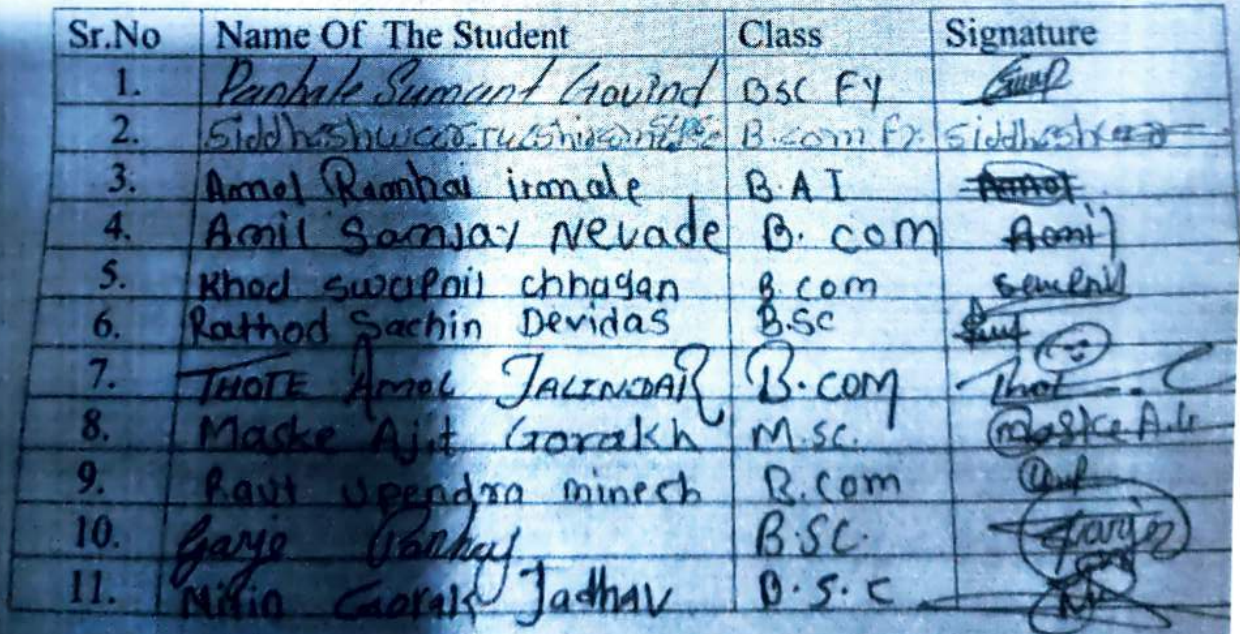 Sr.No Name Of The Student Class Signature
1. Panhale Sumant Govind BSC FY
2. B.com Fy.
3. Amol irmale B.A I Amol
4. Amil Samjay Nevade B. com Aamil
5. Khod swapnil chhagan B.com swapnil
6. Rathod Sachin Devidas B.SC
7. THOTE Amol JALINDAR B.com Thot
8. Maske Ajit Gorakh M.sc. maske A.G
9. Raut upendra minesh B.com
10. Garje Pankaj B.SC. Garje
11. Nitin Gorak Jadhav B.S.C